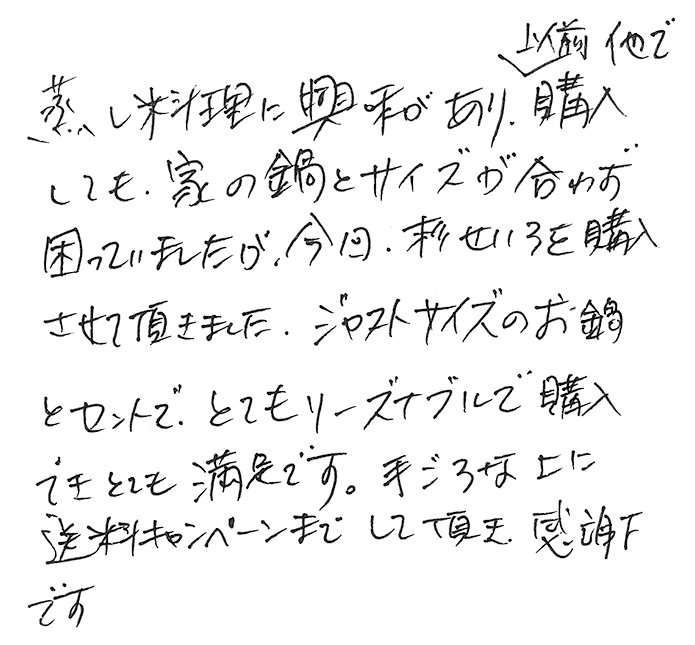 以前 他で
蒸し料理に興味があり、購入
しても、家の鍋とサイズが合わず
困っていましたが、今回、杉せいろを購入
させて頂きました、ジャストサイズのお鍋
とセットで、とてもリーズナブルで購入
できとても満足です。手ごろな上に
送料キャンペーンまでして頂き、感謝
です